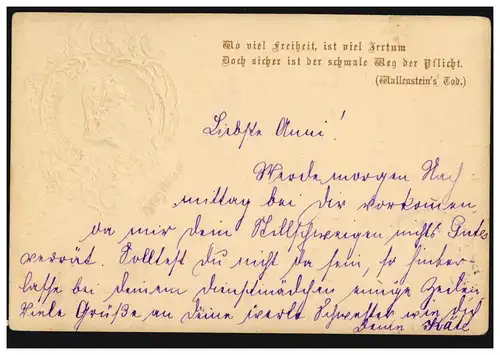 Wo viel Freiheit, ist viel Irrtum
Doch sicher ist der schmale Weg der Pflicht.
(Wallenstein's Tod.)
Liebste Anni!
Werde morgen Nach-
mittag bei dir vorkomen
da mir dein Stillschweigen nichts Gutes
verrät. Solltest du nicht da sein, so hinter-
lasse bei deinem Dienstmädchen einige Zeilen
Viele Grüße an deine werte Schwester wie dich
Deine Käte